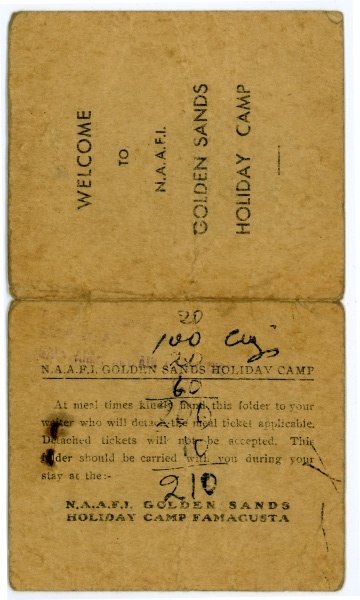 WELCOME
TO
N.A.A.F.I.
GOLDEN SANDS
HOLIDAY CAMP
20
100 Cigs
20
N.A.A.F.I. GOLDEN SANDS HOLIDAY CAMP
60
At meal times kindly hand this folder to your
waiter who will detach the meal ticket applicable.
Detached tickets will not be accepted. This
folder should be carried with you during your
stay at the:-
10
210
N.A.A.F.I. GOLDEN SANDS
HOLIDAY CAMP FAMAGUSTA